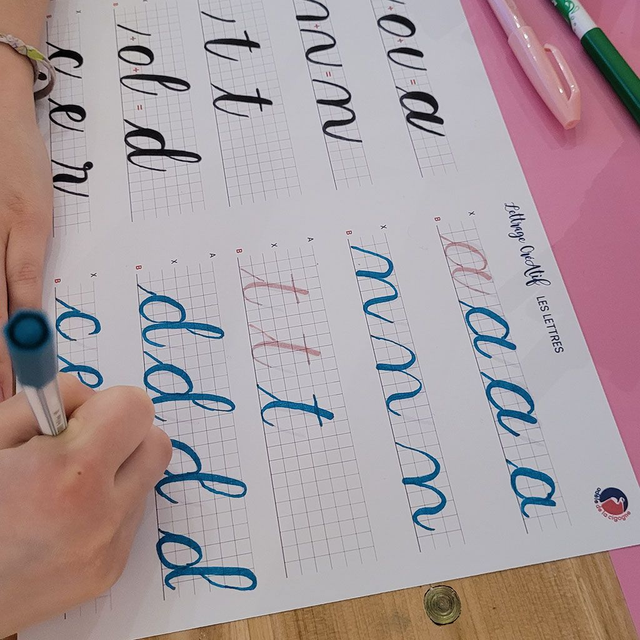 Lettrage Créatif LES LETTRES
+ v = a
a a a a
= n
n n n
t t
t t t
+ l = d
d d d d
c e r
c e
de la cigogne